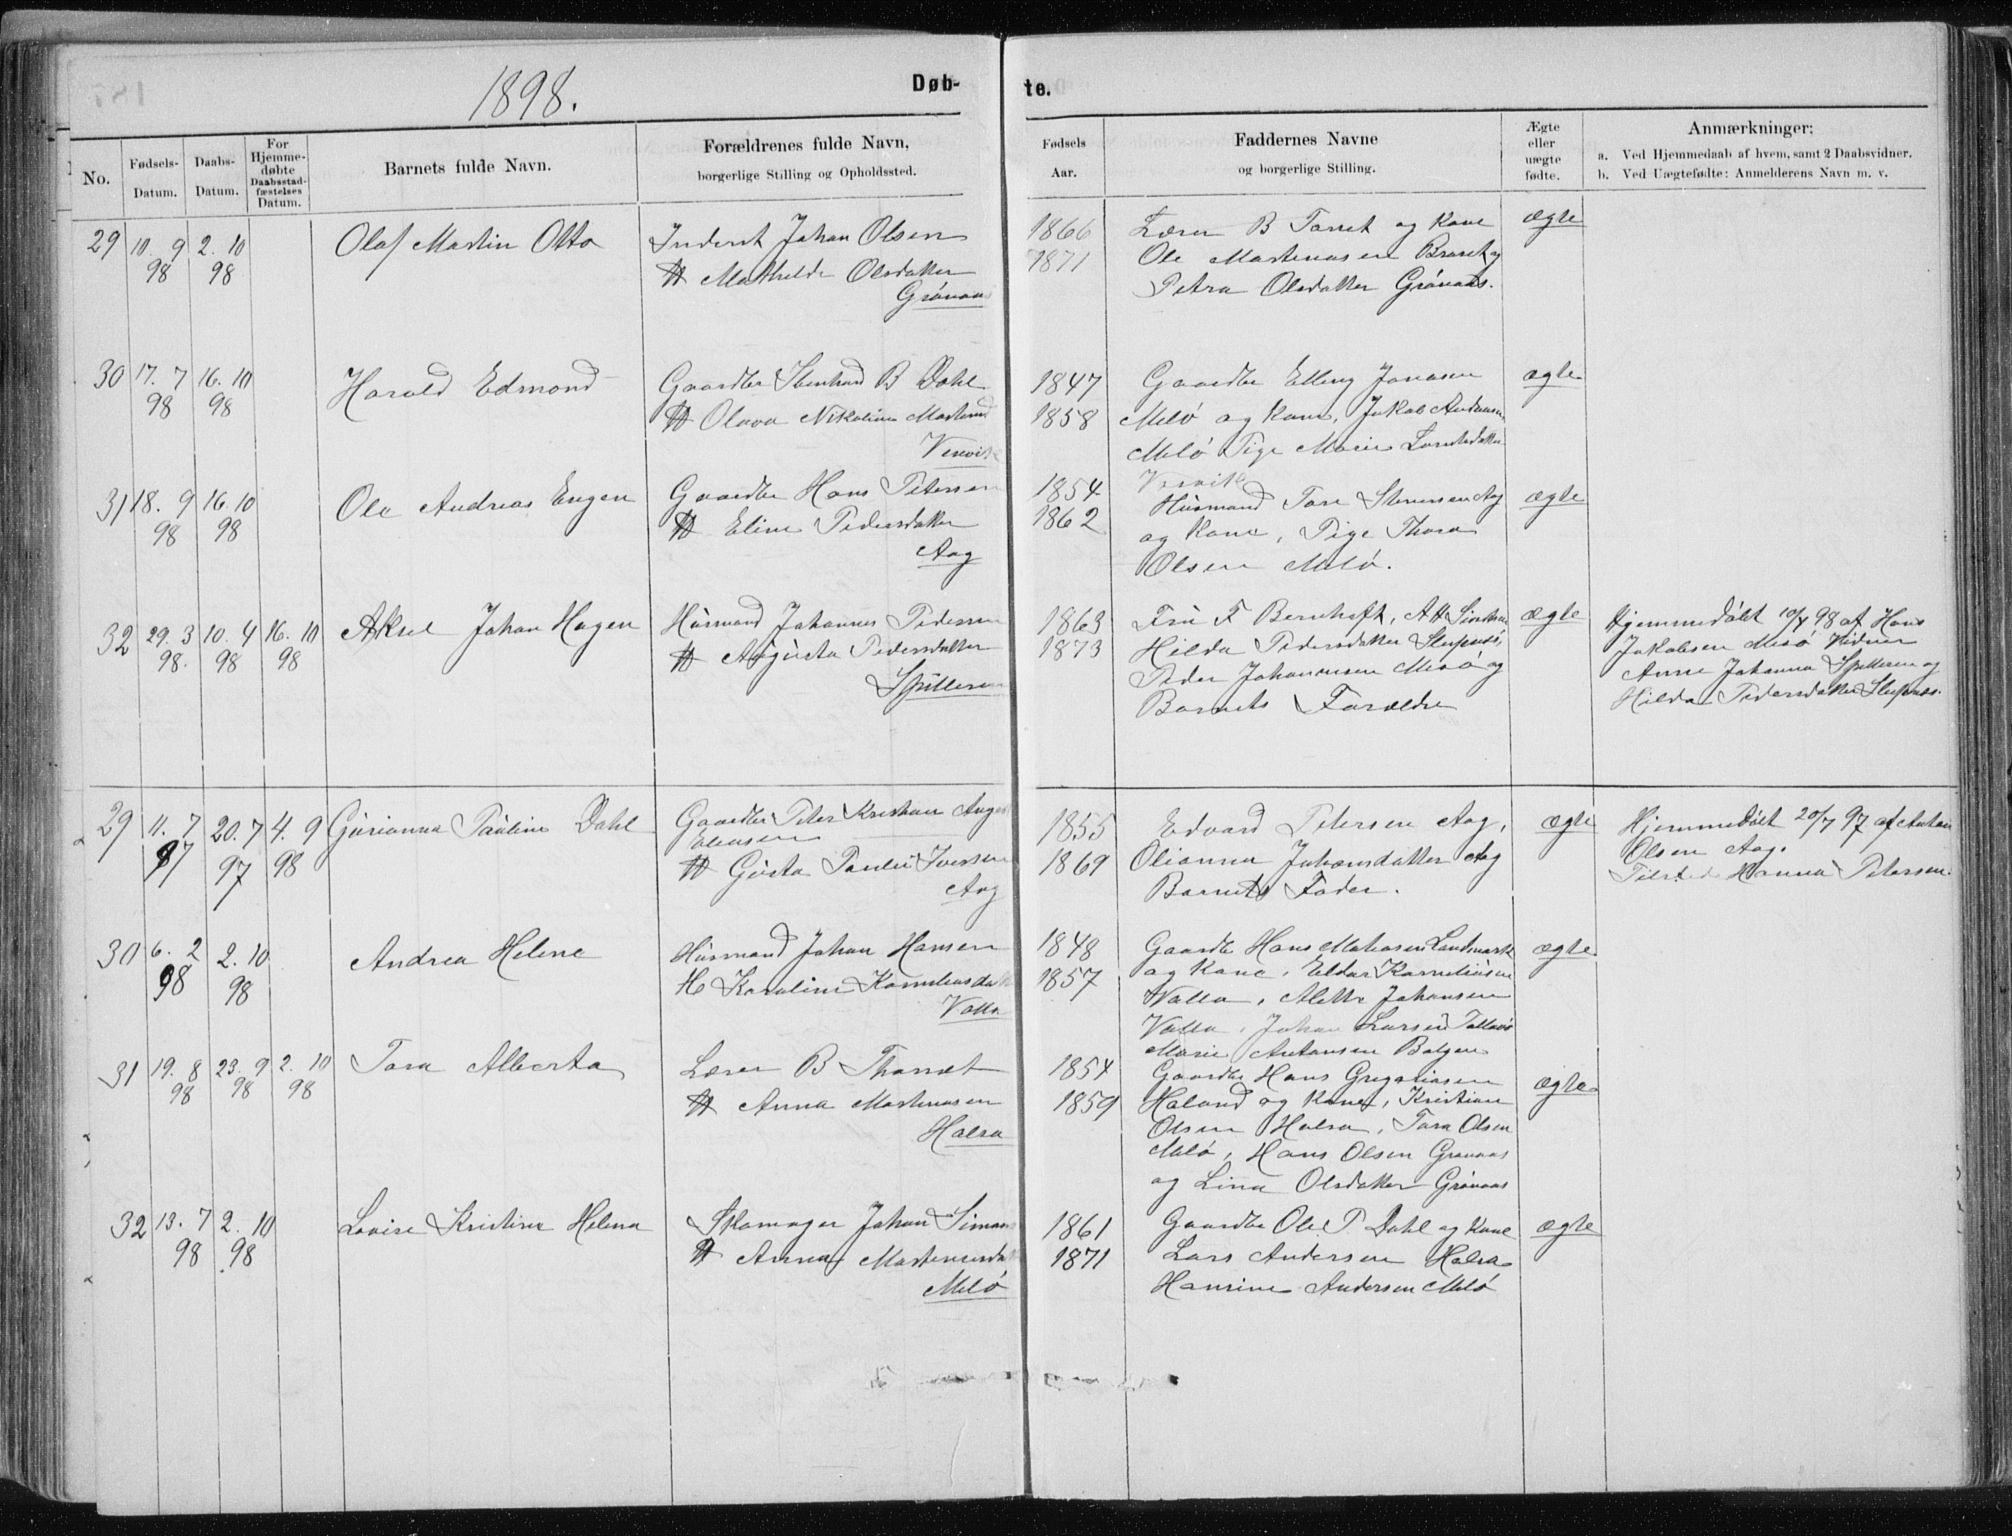 1898.
Døb-
te.
No.
Fødsels-
Datum.
Daabs-
Datum.
For
Hjemme-
døbte
Daabsstad-
fæstelses
Datum.
Barnets fulde Navn.
Forældrenes fulde Navn,
borgerlige Stilling og Opholdssted.
Fødsels
Aar.
Faddernes Navne
og borgerlige Stilling.
Ægte
eller
uægte
fødte.
Anmærkninger:
a. Ved Hjemmedaab af hvem, samt 2 Daabsvidner.
b. Ved Uægtefødte: Anmelderens Navn m. v.
29 10. 9 2. 10
98 98
Olaf Martin Otto
Inderst Johan Olsen
H Mathilde Olsdatter
Grönaas
1866
1871
Lærer B Torret og Kone
Ole Martinussen Braset og
Petra Olsdatter Grönaas.
ægte
30 17. 7 16. 10
98 98
Harald Edmond
Gaardbr Stenhard B Dahl
H Olava Nikoline
1847
1858
Gaardbr Elling Jonasen
Melö og Kone, Jakob
Melö Pige Marie
ægte
31 18. 9 16. 10
98 98
Ole Andreas Eugen
Gaardbr Hans Petersen
H Eline Pedersdatter
Aag
1854
1862
Husmand Tore Aag
og Kone, Pige Thora
Olsen Melö.
ægte
32 29. 3 10. 4 16. 10
98. 98 98
Aksel Johan Hagen
Husmand Johannes Pedersen
H Augusta Pedersdatter
Spilleren
1863
1873
Fru F Bernhoft,
Hilda Pedersdatter
Peder Johannesen Mesö og
Barnets Forældre
ægte
Hjemmedöbt 10/4 98 af Hans
Jakobsen Mesö Vidner
Anne Johanna Spilleren og
Hilda Pedersdatter
29 11. 7 20. 7 4. 9
97 97 98
Gurianna Pauline Dahl
Gaardbr Peter Kristian August
H Gusta Iversen
Aag
1855
1869
Edvard Petersen Aag,
Olianna Johansdatter Aag
Barnets Fader.
ægte
Hjemmedöbt 20/7 97 af Anton
Olsen Aag.
Tilsted Hanna Petersen.
30 6. 2 2. 10
98 98
Andrea Helene
Husmand Johan Hansen
H Karoline
Valla
1848
1857
Gaardbr Hans
og Kone, Eldar Korneliusen
Valla, Alette Johansen
Valla, Johan Larsen
Marie Antonsen Bolgen
ægte
31 19. 8 23. 9 2. 10
98 98 98
Tora Alberta
Lærer B Thorret
H Anna Martinusen
Halsa
1854
1859
Gaardbr Hans Gregoriusen
Haland og Kone, Kristian
Olsen Halsa, Tora Olsen
Melö, Hans Olsen Grönaas
og Lina Olsdatter Grönaas
ægte
32 13. 7 2. 10
98 98
Lovise Kristine Helena
Skomager Johan
H Anna
Melö
1861
1871
Gaardbr Ole P Dahl og Kone
Lars Andersen Halsa
Hansine Andersen Melö
ægte